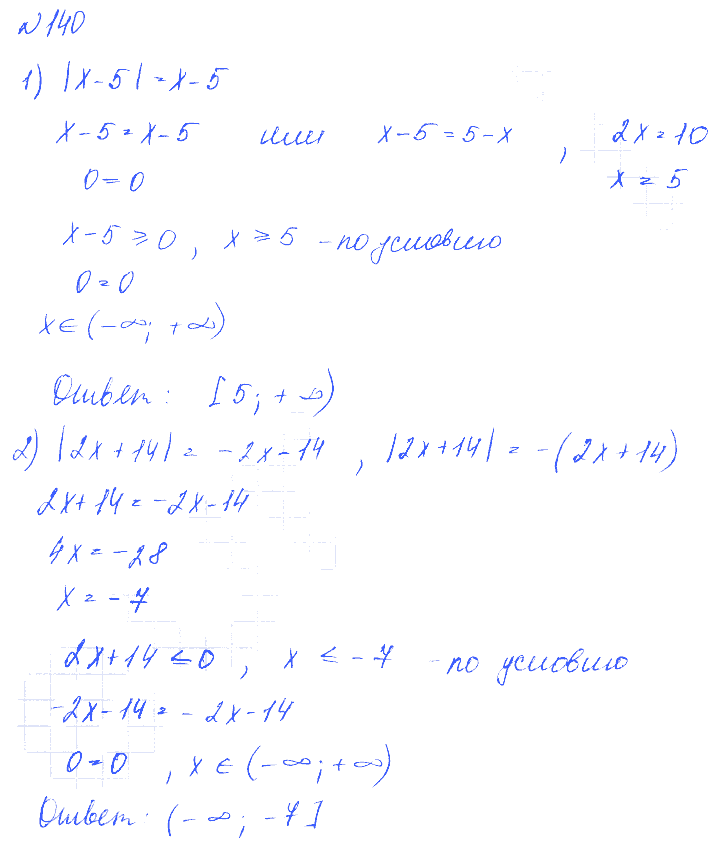 №140
1) |x-5| = x-5
x-5 = x-5 или x-5 = 5-x , 2x = 10
0 = 0 x = 5
x-5 ≥ 0 , x ≥ 5 - по условию
0 = 0
x ∈ (-∞; +∞)
Ответ: [5; +∞)
2) |2x+14| = -2x-14 , |2x+14| = -(2x+14)
2x+14 = -2x-14
4x = -28
x = -7
2x+14 ≤ 0 , x ≤ -7 - по условию
-2x-14 = -2x-14
0 = 0 , x ∈ (-∞; +∞)
Ответ: (-∞; -7]